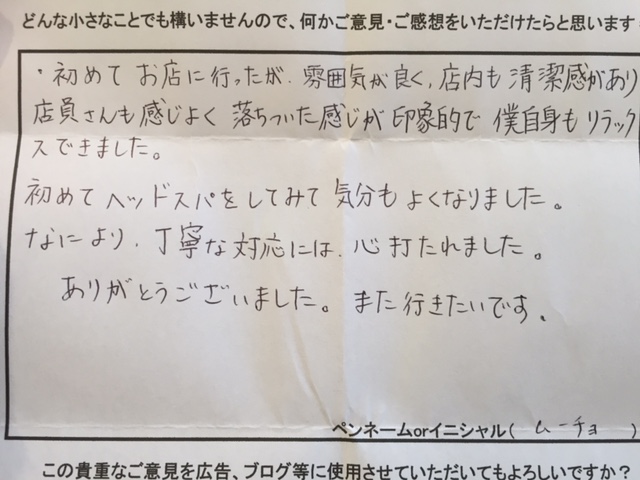 どんな小さなことでも構いませんので、何かご意見・ご感想をいただけたらと思います
・初めてお店に行ったが、雰囲気が良く、店内も清潔感があり
店員さんも感じよく落ちついた感じが印象的で僕自身もリラック
スできました。
初めてヘッドスパをしてみて気分もよくなりました。
なにより、丁寧な対応には、心打たれました。
ありがとうございました。また行きたいです。
ペンネームorイニシャル( ムーチョ )
この貴重なご意見を広告、ブログ等に使用させていただいてもよろしいですか?